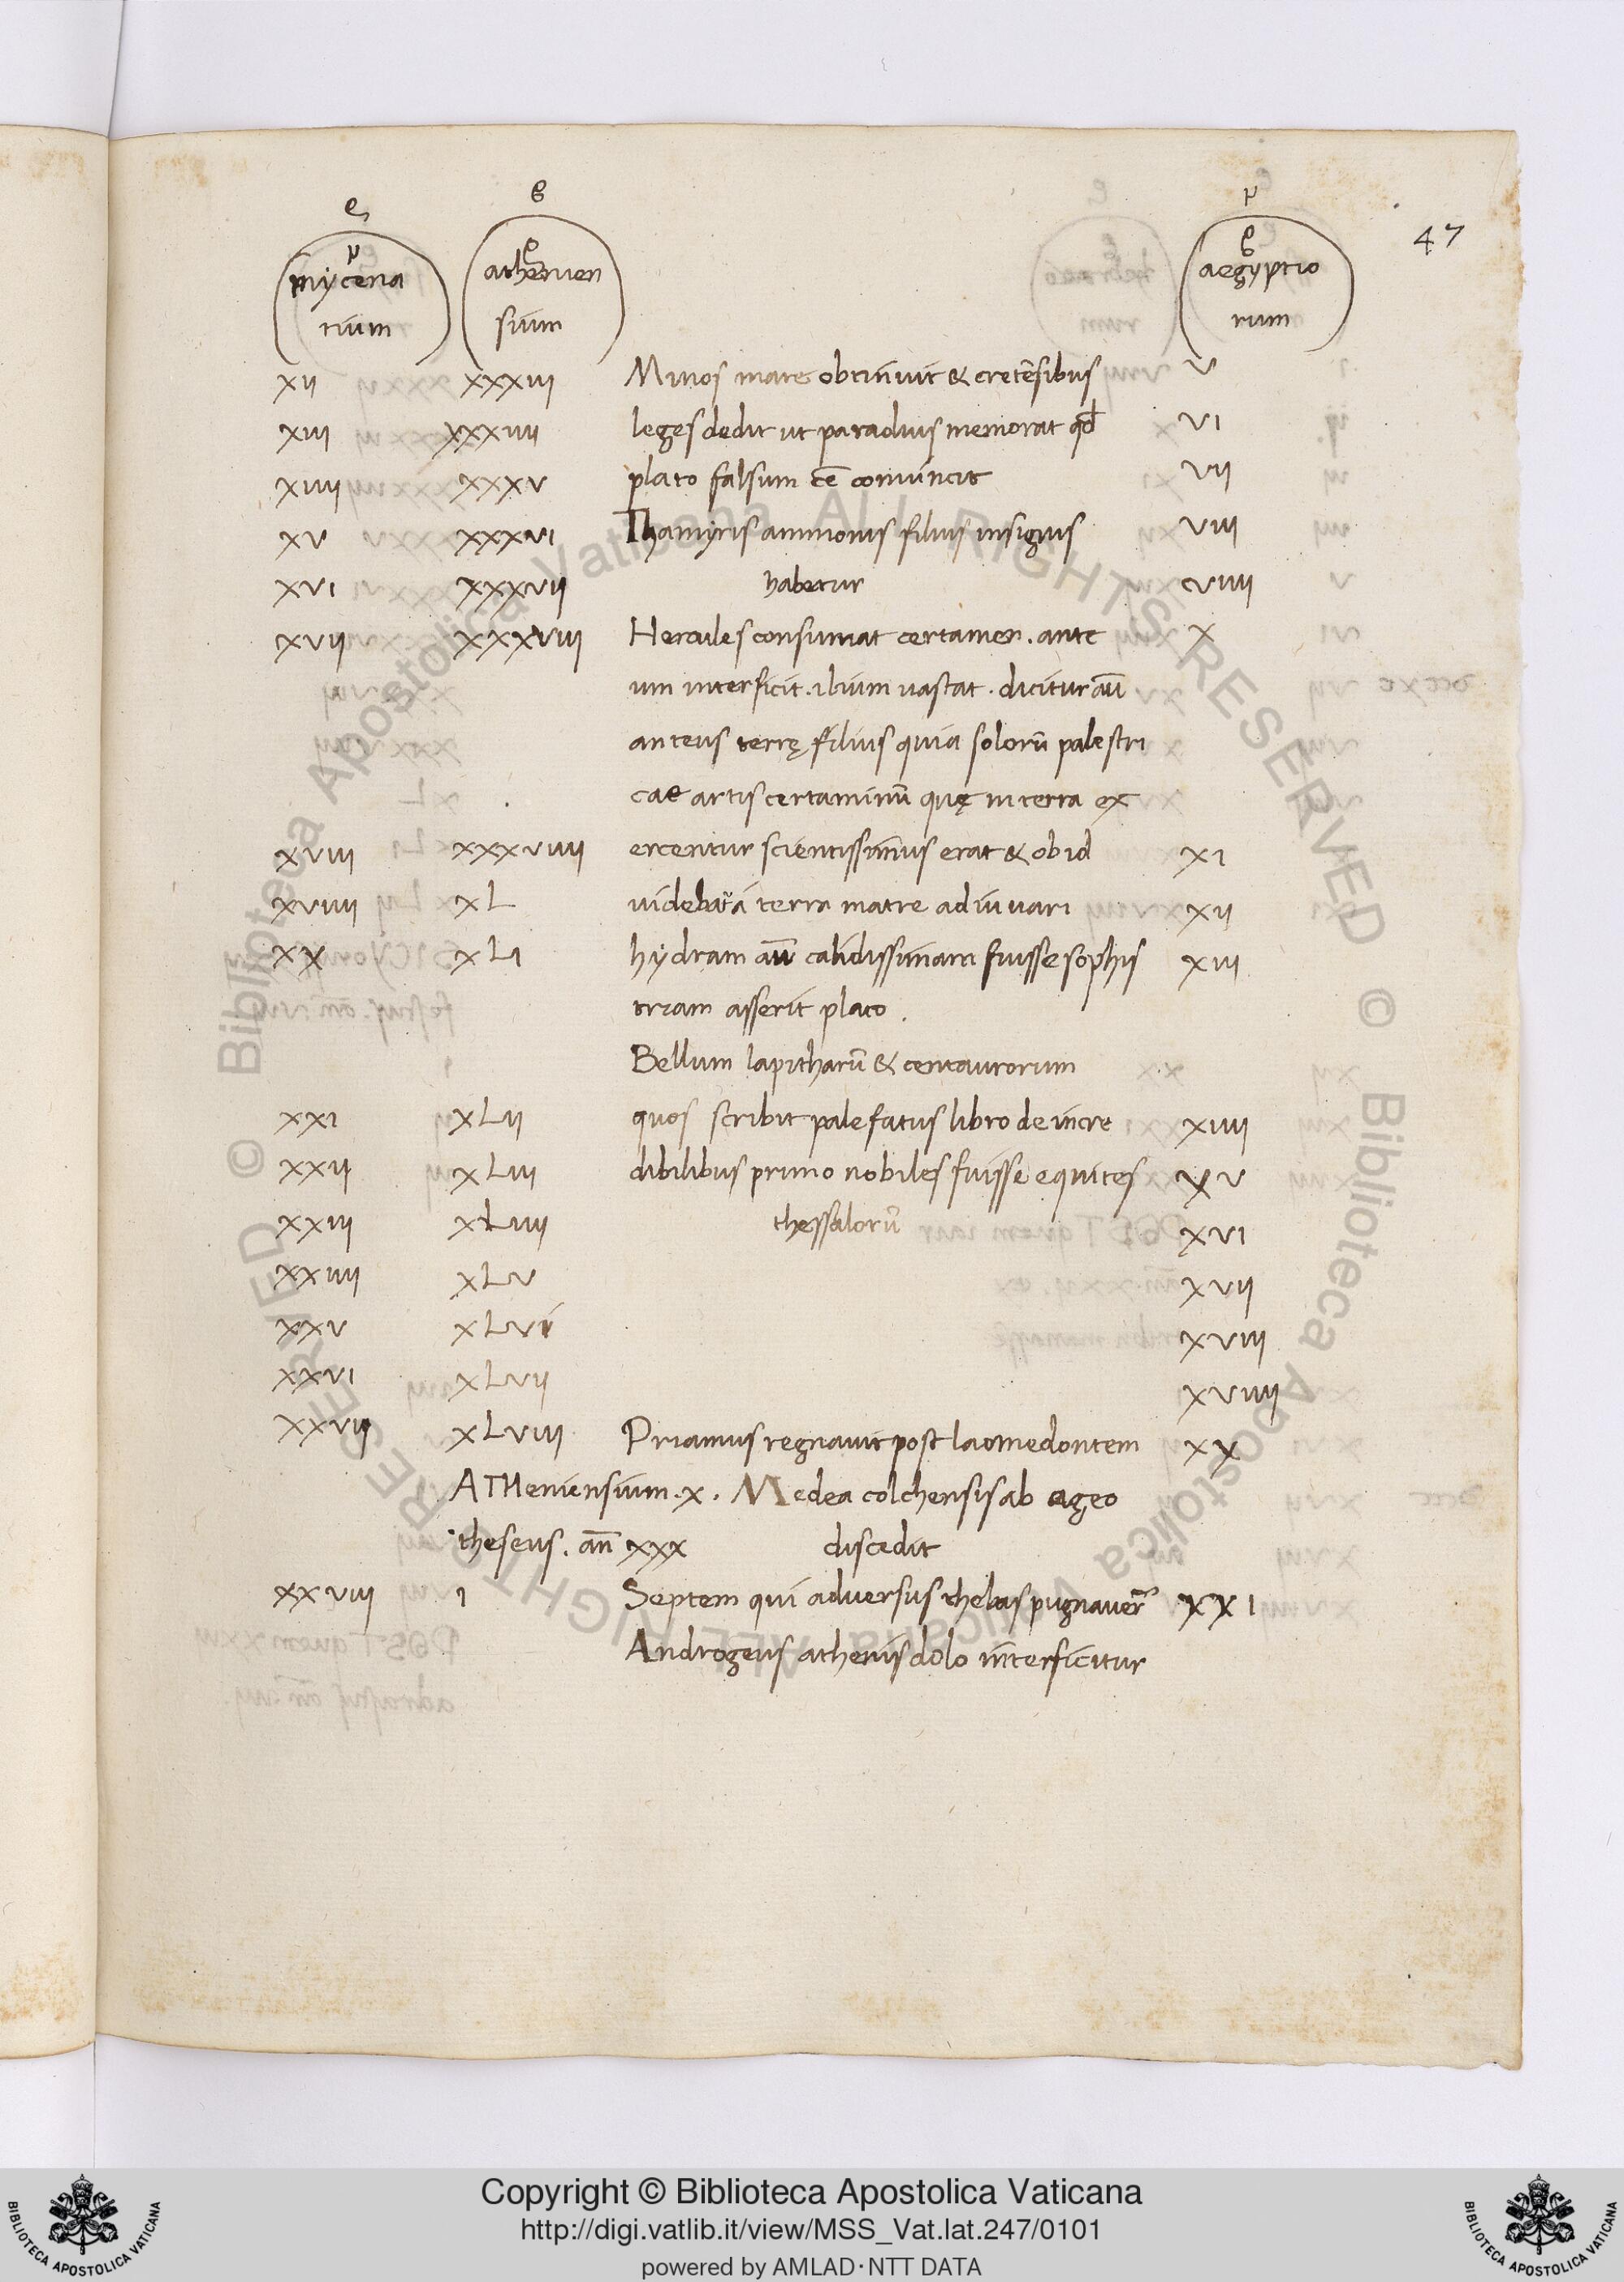 47
mycena athenien aegyptio
rum sium rum
xii xxxiii Minos mare obtinuit & cretēsibus v
xiii xxxiiii leges dedit ut paradius memorat qd̄ vi
xiiii xxxv plato falsum eē conuincit vii
xv xxxvi Thamyris ammonis filius insignis viii
xvi xxxvii habetur viiii
xvii xxxviii Hercules consumat certamen. ante x
um interficit. ilium uastat. dicitur aū
anteus terrę filius quia solorū palestri
cae artis certaminū quę in terra ex
xviii xxxviiii ercentur scientissimus erat & ob id xi
xviiii xL uidebat᷑ á terra matre adiuuari xii
xx xLi hydram aū calidissimam fuisse sophis xiii
triam asserit plato.
Bellum lapitharū & centaurorum
xxi xLii quos scribit palefatus libro de incre xiiii
xxii xLiii dibilibus primo nobiles fuisse equites xv
xxiii xLiiii thessalorū xvi
xxiiii xLv xvii
xxv xLvi xviii
xxvi xLvii xviiii
xxvii xLviii Priamus regnauit post laomedontem xx
ATHeniensium. x. Medea colchensis ab ageo
theseus. añ xxx discedit
xxviii i Septem qui aduersus thebas pugnauer̄ xxi
Androgeus athenis dolo interficitur
Copyright © Biblioteca Apostolica Vaticana
http://digi.vatlib.it/view/MSS_Vat.lat.247/0101
powered by AMLAD·NTT DATA
BIBLIOTECA APOSTOLICA VATICANA
BIBLIOTECA APOSTOLICA VATICANA
© Biblioteca Apostolica Vaticana ALL RIGHTS RESERVED © Biblioteca Apostolica Vaticana ALL RIGHTS RESERVED